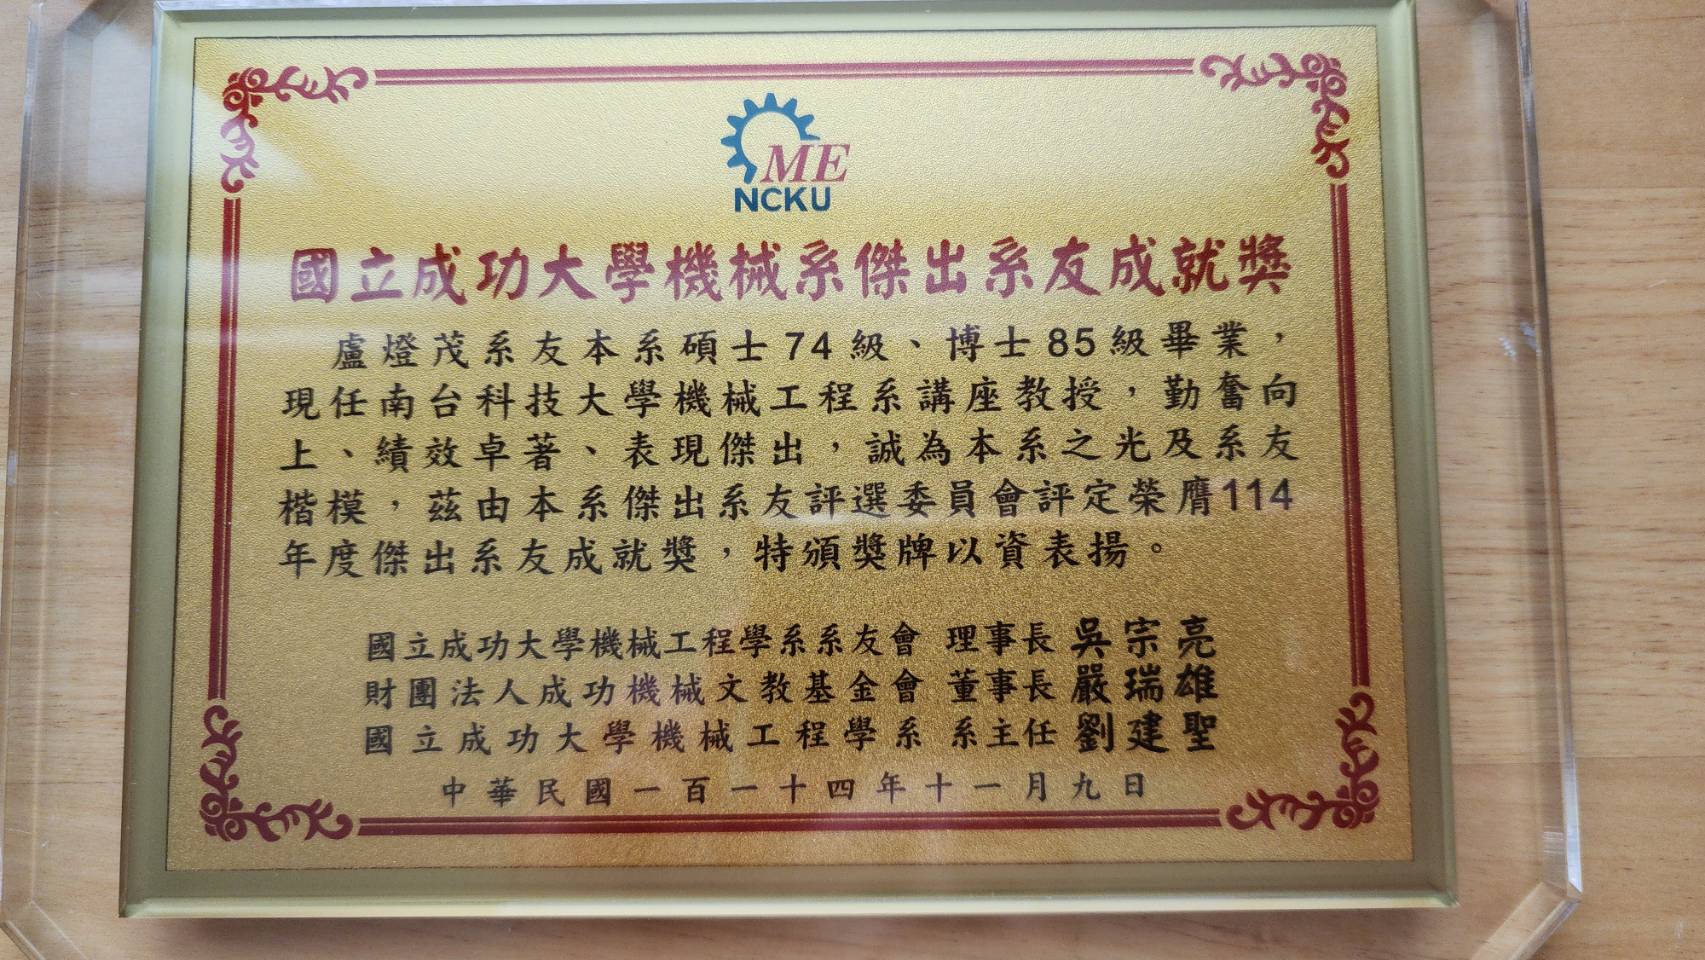 ME
NCKU
國立成功大學機械系傑出系友成就獎
盧燈茂系友本系碩士74級、博士85級畢業，
現任南台科技大學機械工程系講座教授，勤奮向
上、績效卓著、表現傑出，誠為本系之光及系友
楷模，茲由本系傑出系友評選委員會評定榮膺114
年度傑出系友成就獎，特頒獎牌以資表揚。
國立成功大學機械工程學系系友會 理事長 吳宗亮
財團法人成功機械文教基金會 董事長 嚴瑞雄
國立成功大學機械工程學系 系主任 劉建聖
中華民國一百一十四年十一月九日